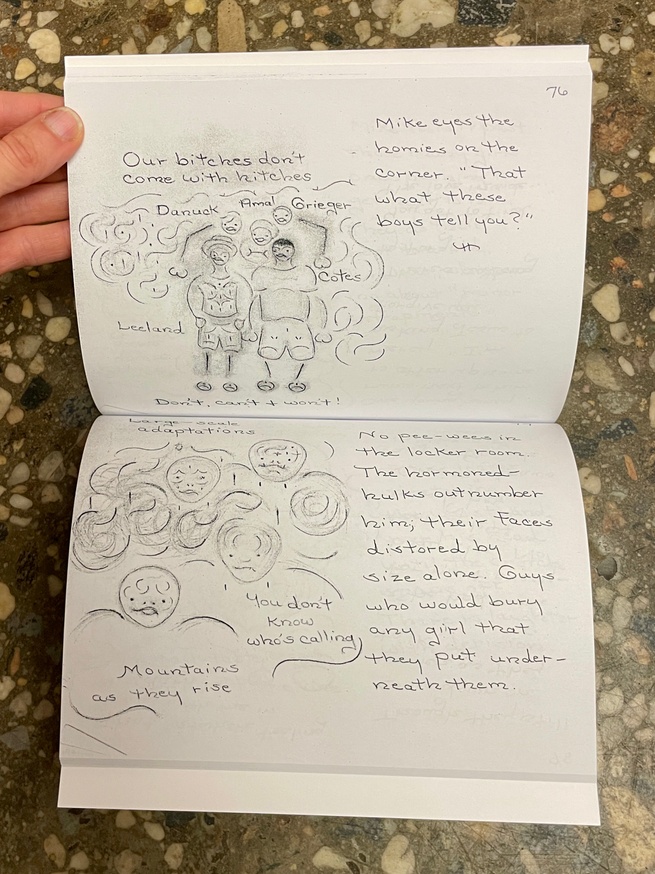 76
Our bitches don't
come with hitches
Danuck Amal Grieger
Cotes
Leeland
Don't, can't + won't!
Mike eyes the
homies on the
corner. "That
what these
boys tell you?"
Large-scale
adaptations
You don't
know
who's calling
Mountains
as they rise
No pee-wees in
the locker room.
The hormoned-
hulks outnumber
him; their faces
distored by
size alone. Guys
who would bury
any girl that
they put under-
neath them.